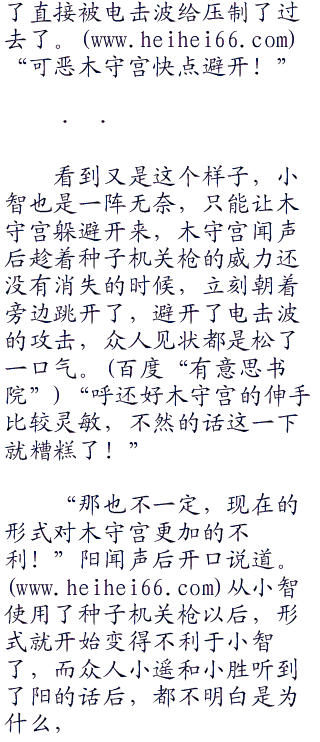 了直接被电击波给压制了过
去了。(www.heihei66.com)
“可恶木守宫快点避开！”
. .
看到又是这个样子，小
智也是一阵无奈，只能让木
守宫躲避开来，木守宫闻声
后趁着种子机关枪的威力还
没有消失的时候，立刻朝着
旁边跳开了，避开了电击波
的攻击，众人见状都是松了
一口气。(百度“有意思书
院”)“呼还好木守宫的伸手
比较灵敏，不然的话这一下
就糟糕了！”
“那也不一定，现在的
形式对木守宫更加的不
利！”阳闻声后开口说道。
(www.heihei66.com)从小智
使用了种子机关枪以后，形
式就开始变得不利于小智
了，而众人小遥和小胜听到
了阳的话后，都不明白是为
什么，